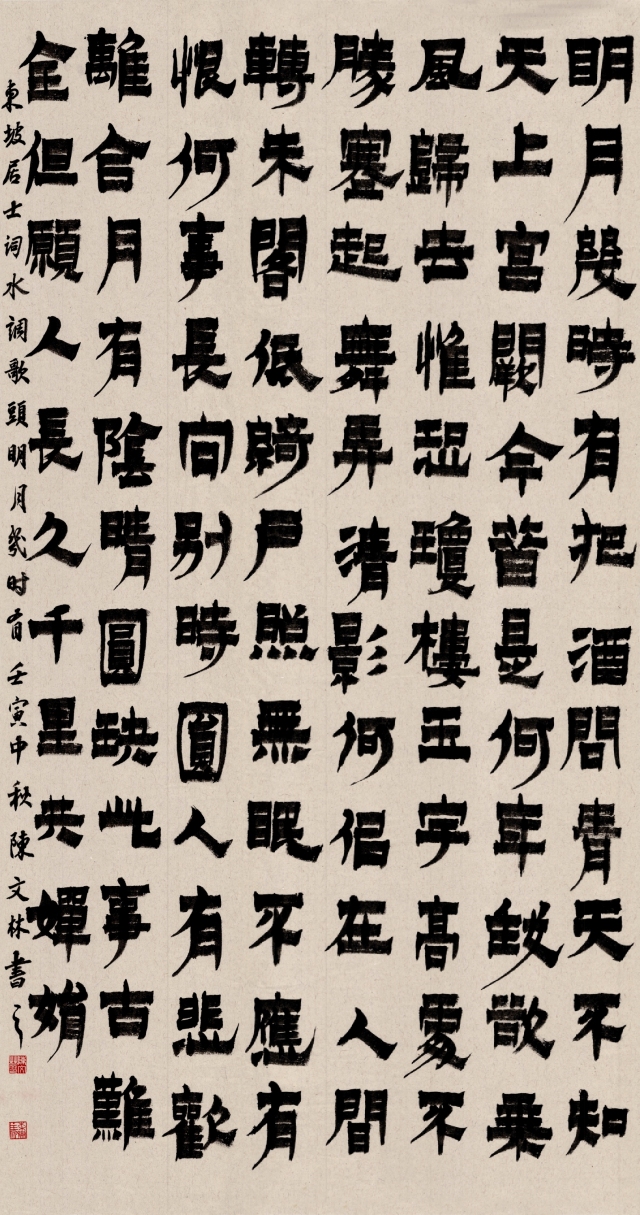 明月幾時有把酒問青天不知
天上宮闕今昔是何年我欲乘
風歸去惟恐瓊樓玉宇高處不
勝寒起舞弄清影何佀在人間
轉朱閣低綺戶照無眠不應有
恨何事長向別時圓人有悲歡
離合月有陰晴圓缺此事古難
全但願人長久千里共嬋娟
東坡居士詞水調歌頭明月幾时有壬寅中秋陳文林書之